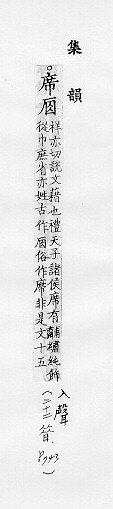 集韻
。席
祥亦切說文藉也禮天子諸侯席有黼繡純飾
從巾庶省亦姓古作 俗作 非是文十五
入聲
(二十二昔, P743)